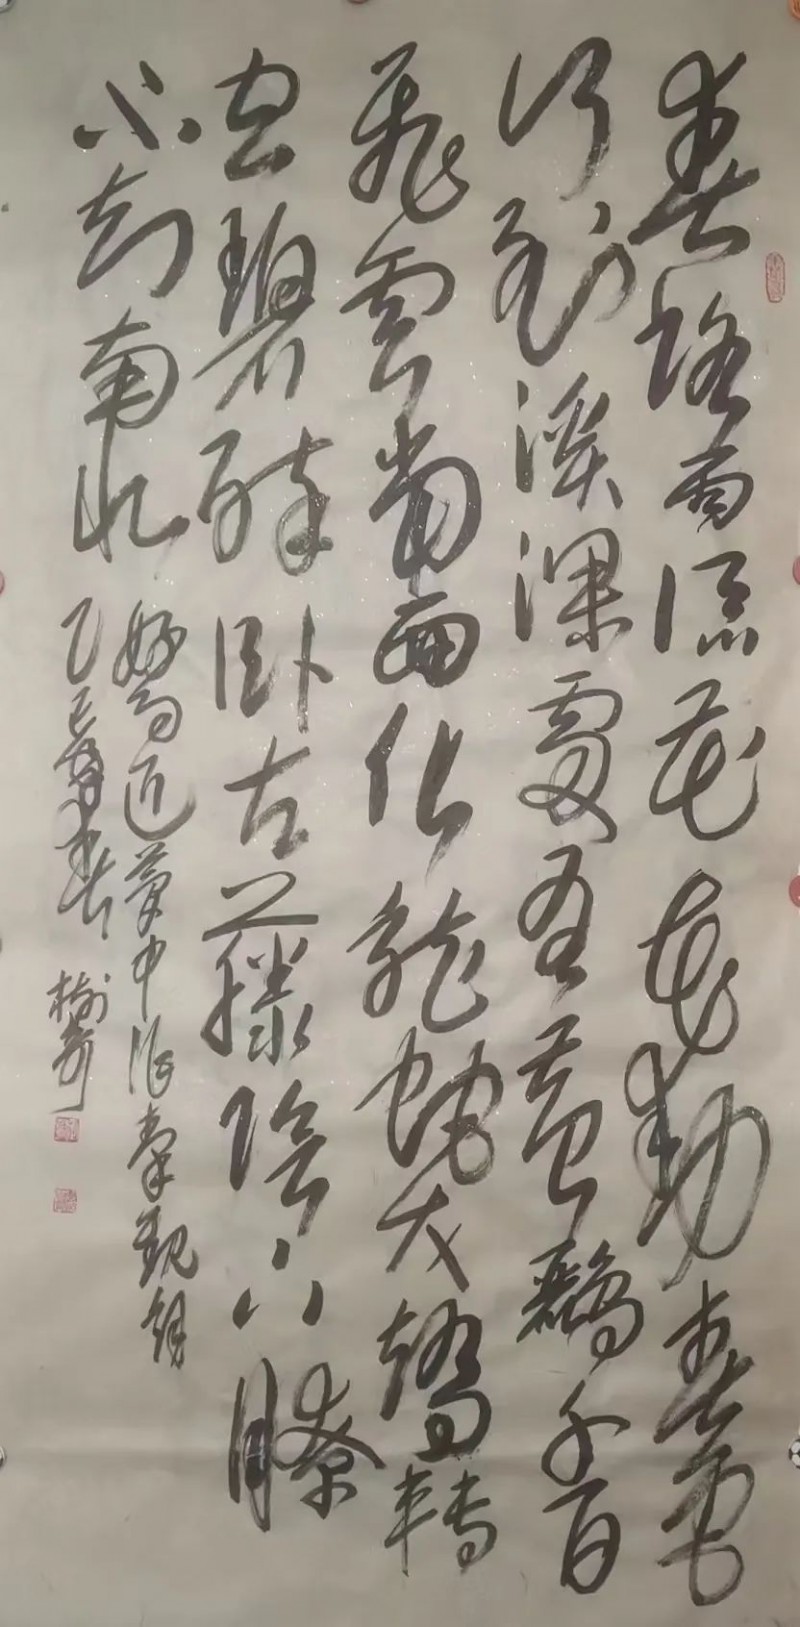 春路雨添花花动春色
行到溪深處有黄鸝千百
飛雲當面化龍蛇夭矯轉
空碧醉卧古藤陰下瞭
不知南北
好事近夢中作秦觀詞
乙巳年春